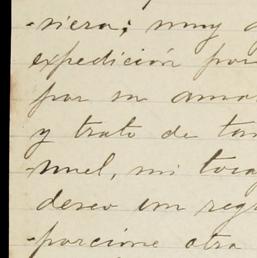 -niera; muy
expedición por
por su ama
y trato de tan
nuel, mi toca
deseo un reg
-porcione otra